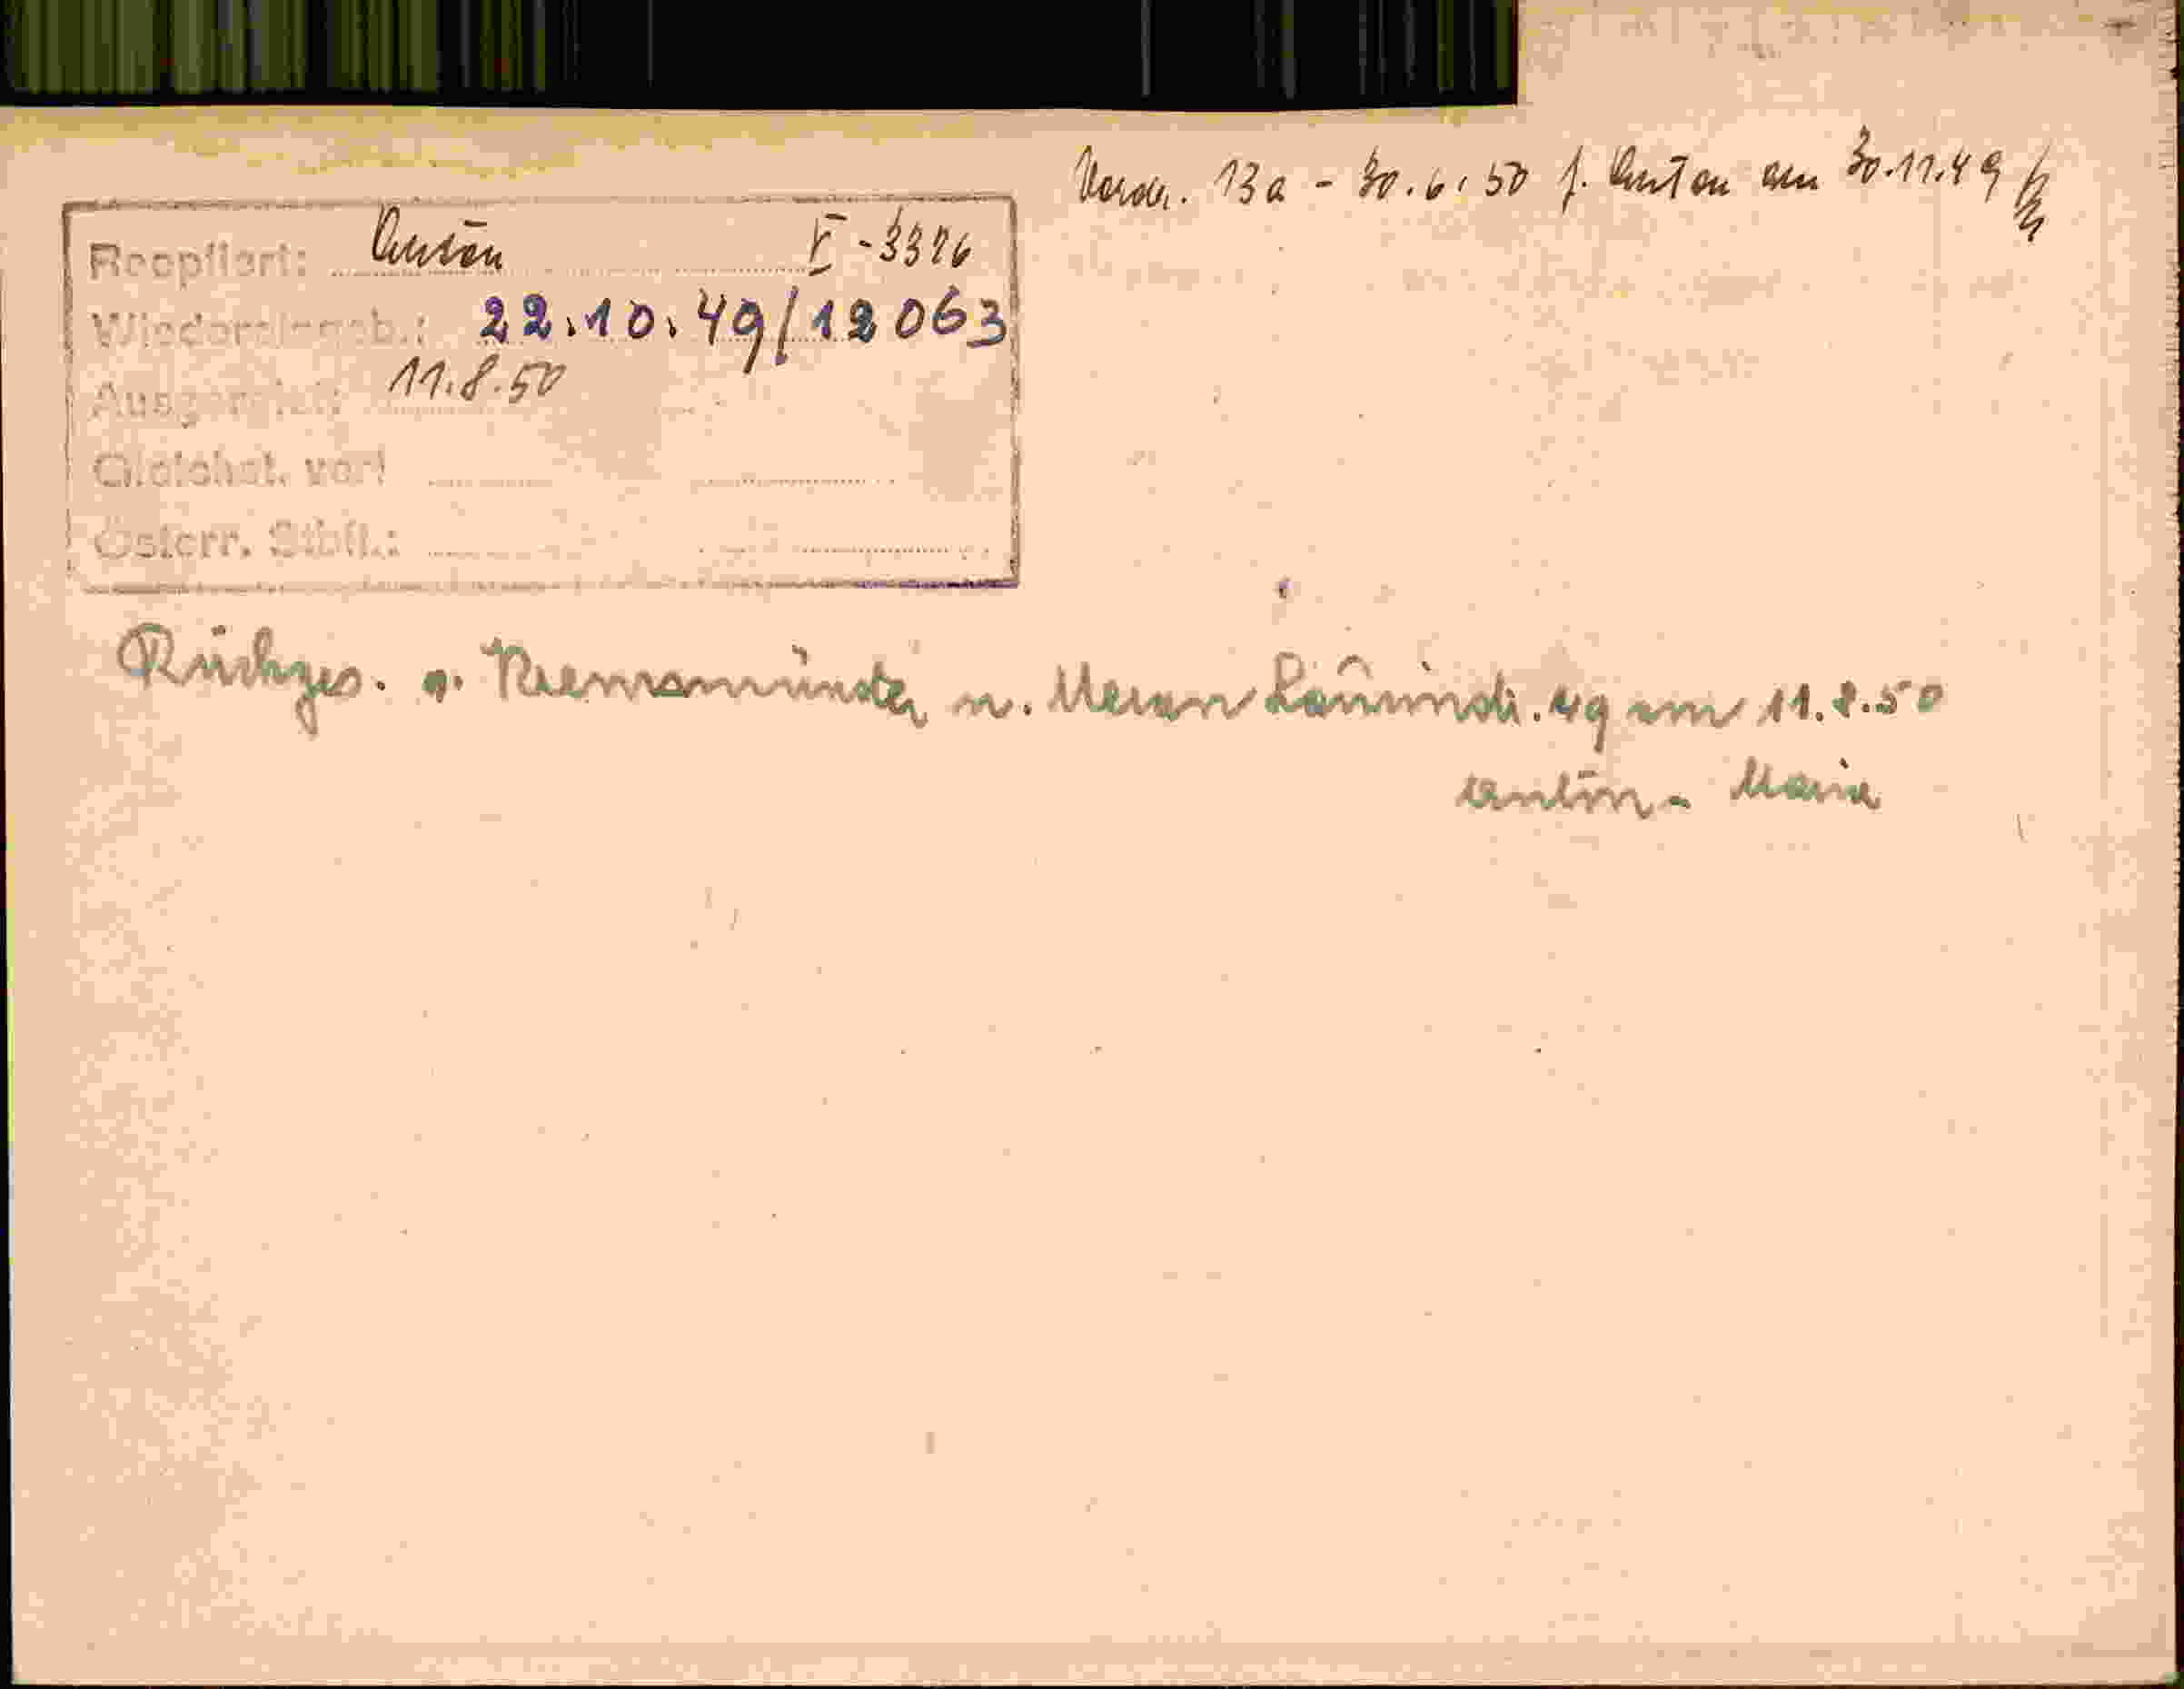 Vordr. 13a - 30.6.50 f. Anton am 30.11.49
Reoptiert: Anton V-3326
Wiedereingeb.: 22.10.49/12063
Ausgereist: 11.8.50
Gleichst. verl
Österr. Stbft.:
Rückges. v. Kremsmünster n. Meran 49 am 11.8.50
Anton - Maria